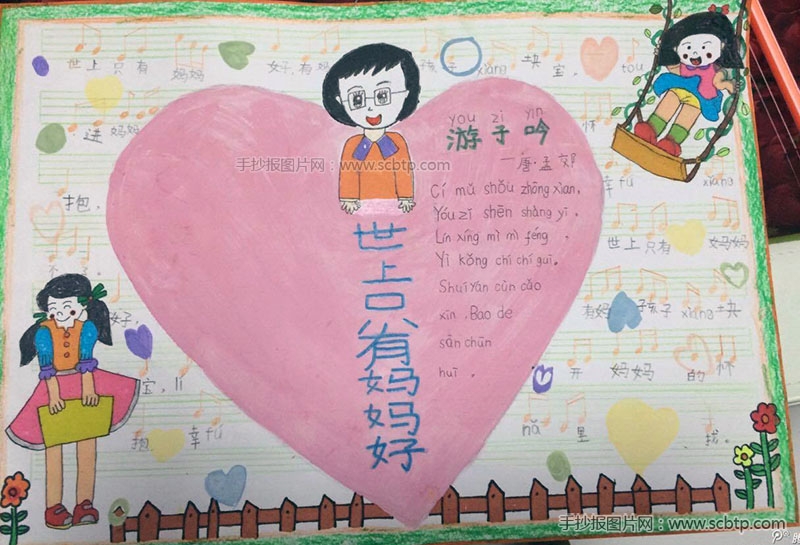 世上只有 妈妈 好,有妈
xiàng 块 宝, tou
进 妈妈
怀
幸 fú
xiǎng
抱,
世上 只有 妈妈
好,
有妈 孩子 xiang 块
宝, lí
开 妈妈 的 怀
抱 幸 fú
nǎ 里 找。
you zi yin
游子吟
一唐·孟郊
Cí mǔ shǒu zhōng xian,
Yóu zǐ shēn shàng yī.
Lín xíng mì mì féng,
Yì kǒng chí chí guī.
Shuí yán cùn cǎo
xin, Bao de
sān chūn
huī.
世上只有妈妈好
手抄报图片网:www.scbtp.com
手抄报图片网:www.scbtp.com